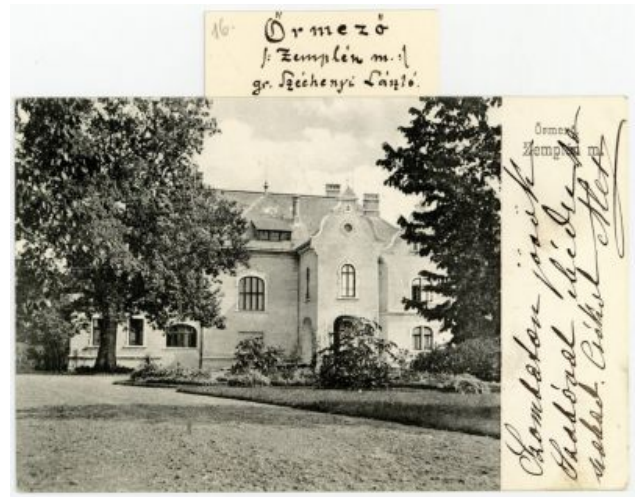 16.
Őrmező
/: Zemplén m. :/
gr. Széchenyi László.
Őrmező
Zemplén m.
Szombaton jövök
ebédre
Csókol